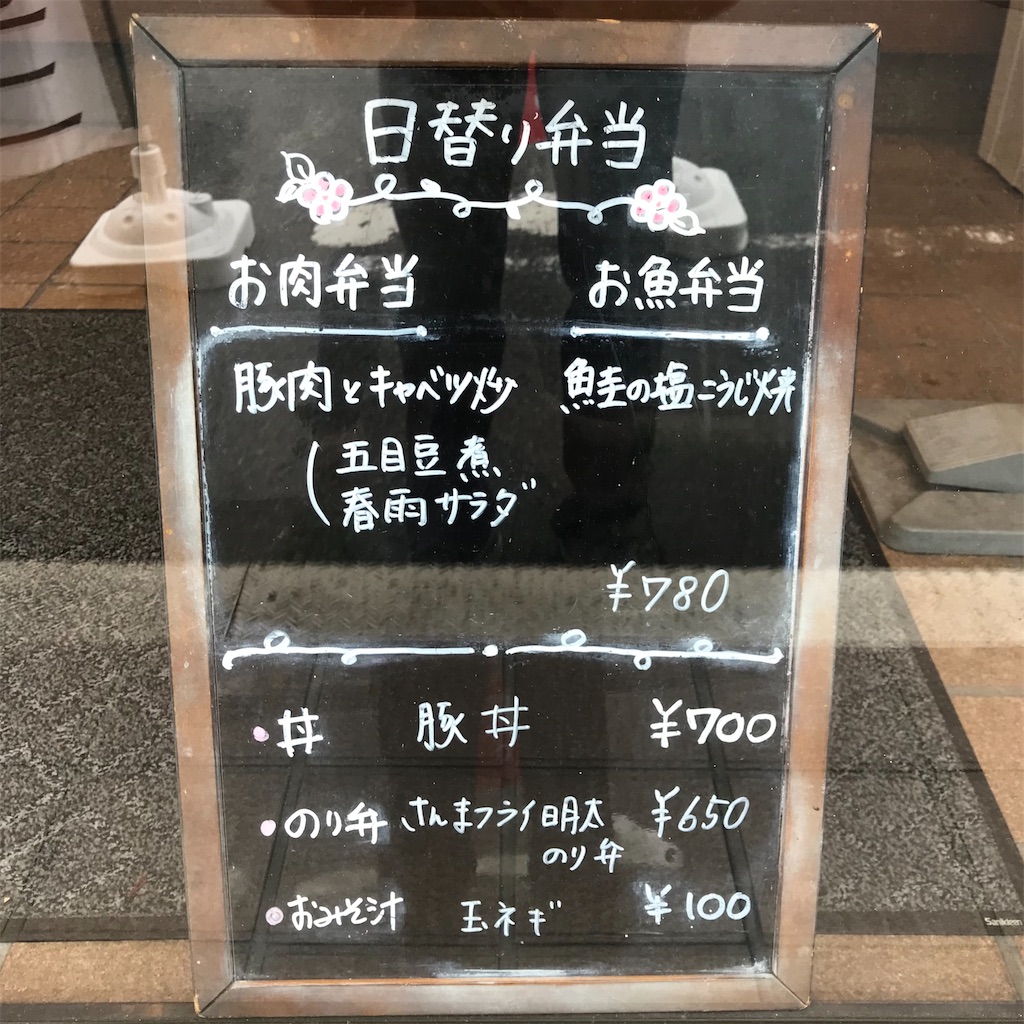 日替り弁当
お肉弁当 お魚弁当
豚肉とキャベツ炒 鮭の塩こうじ焼
五目豆煮
春雨サラダ
¥780
丼 豚丼 ¥700
のり弁 さんまフライ明太 ¥650
のり弁
おみそ汁 玉ネギ ¥100
Sanikleen